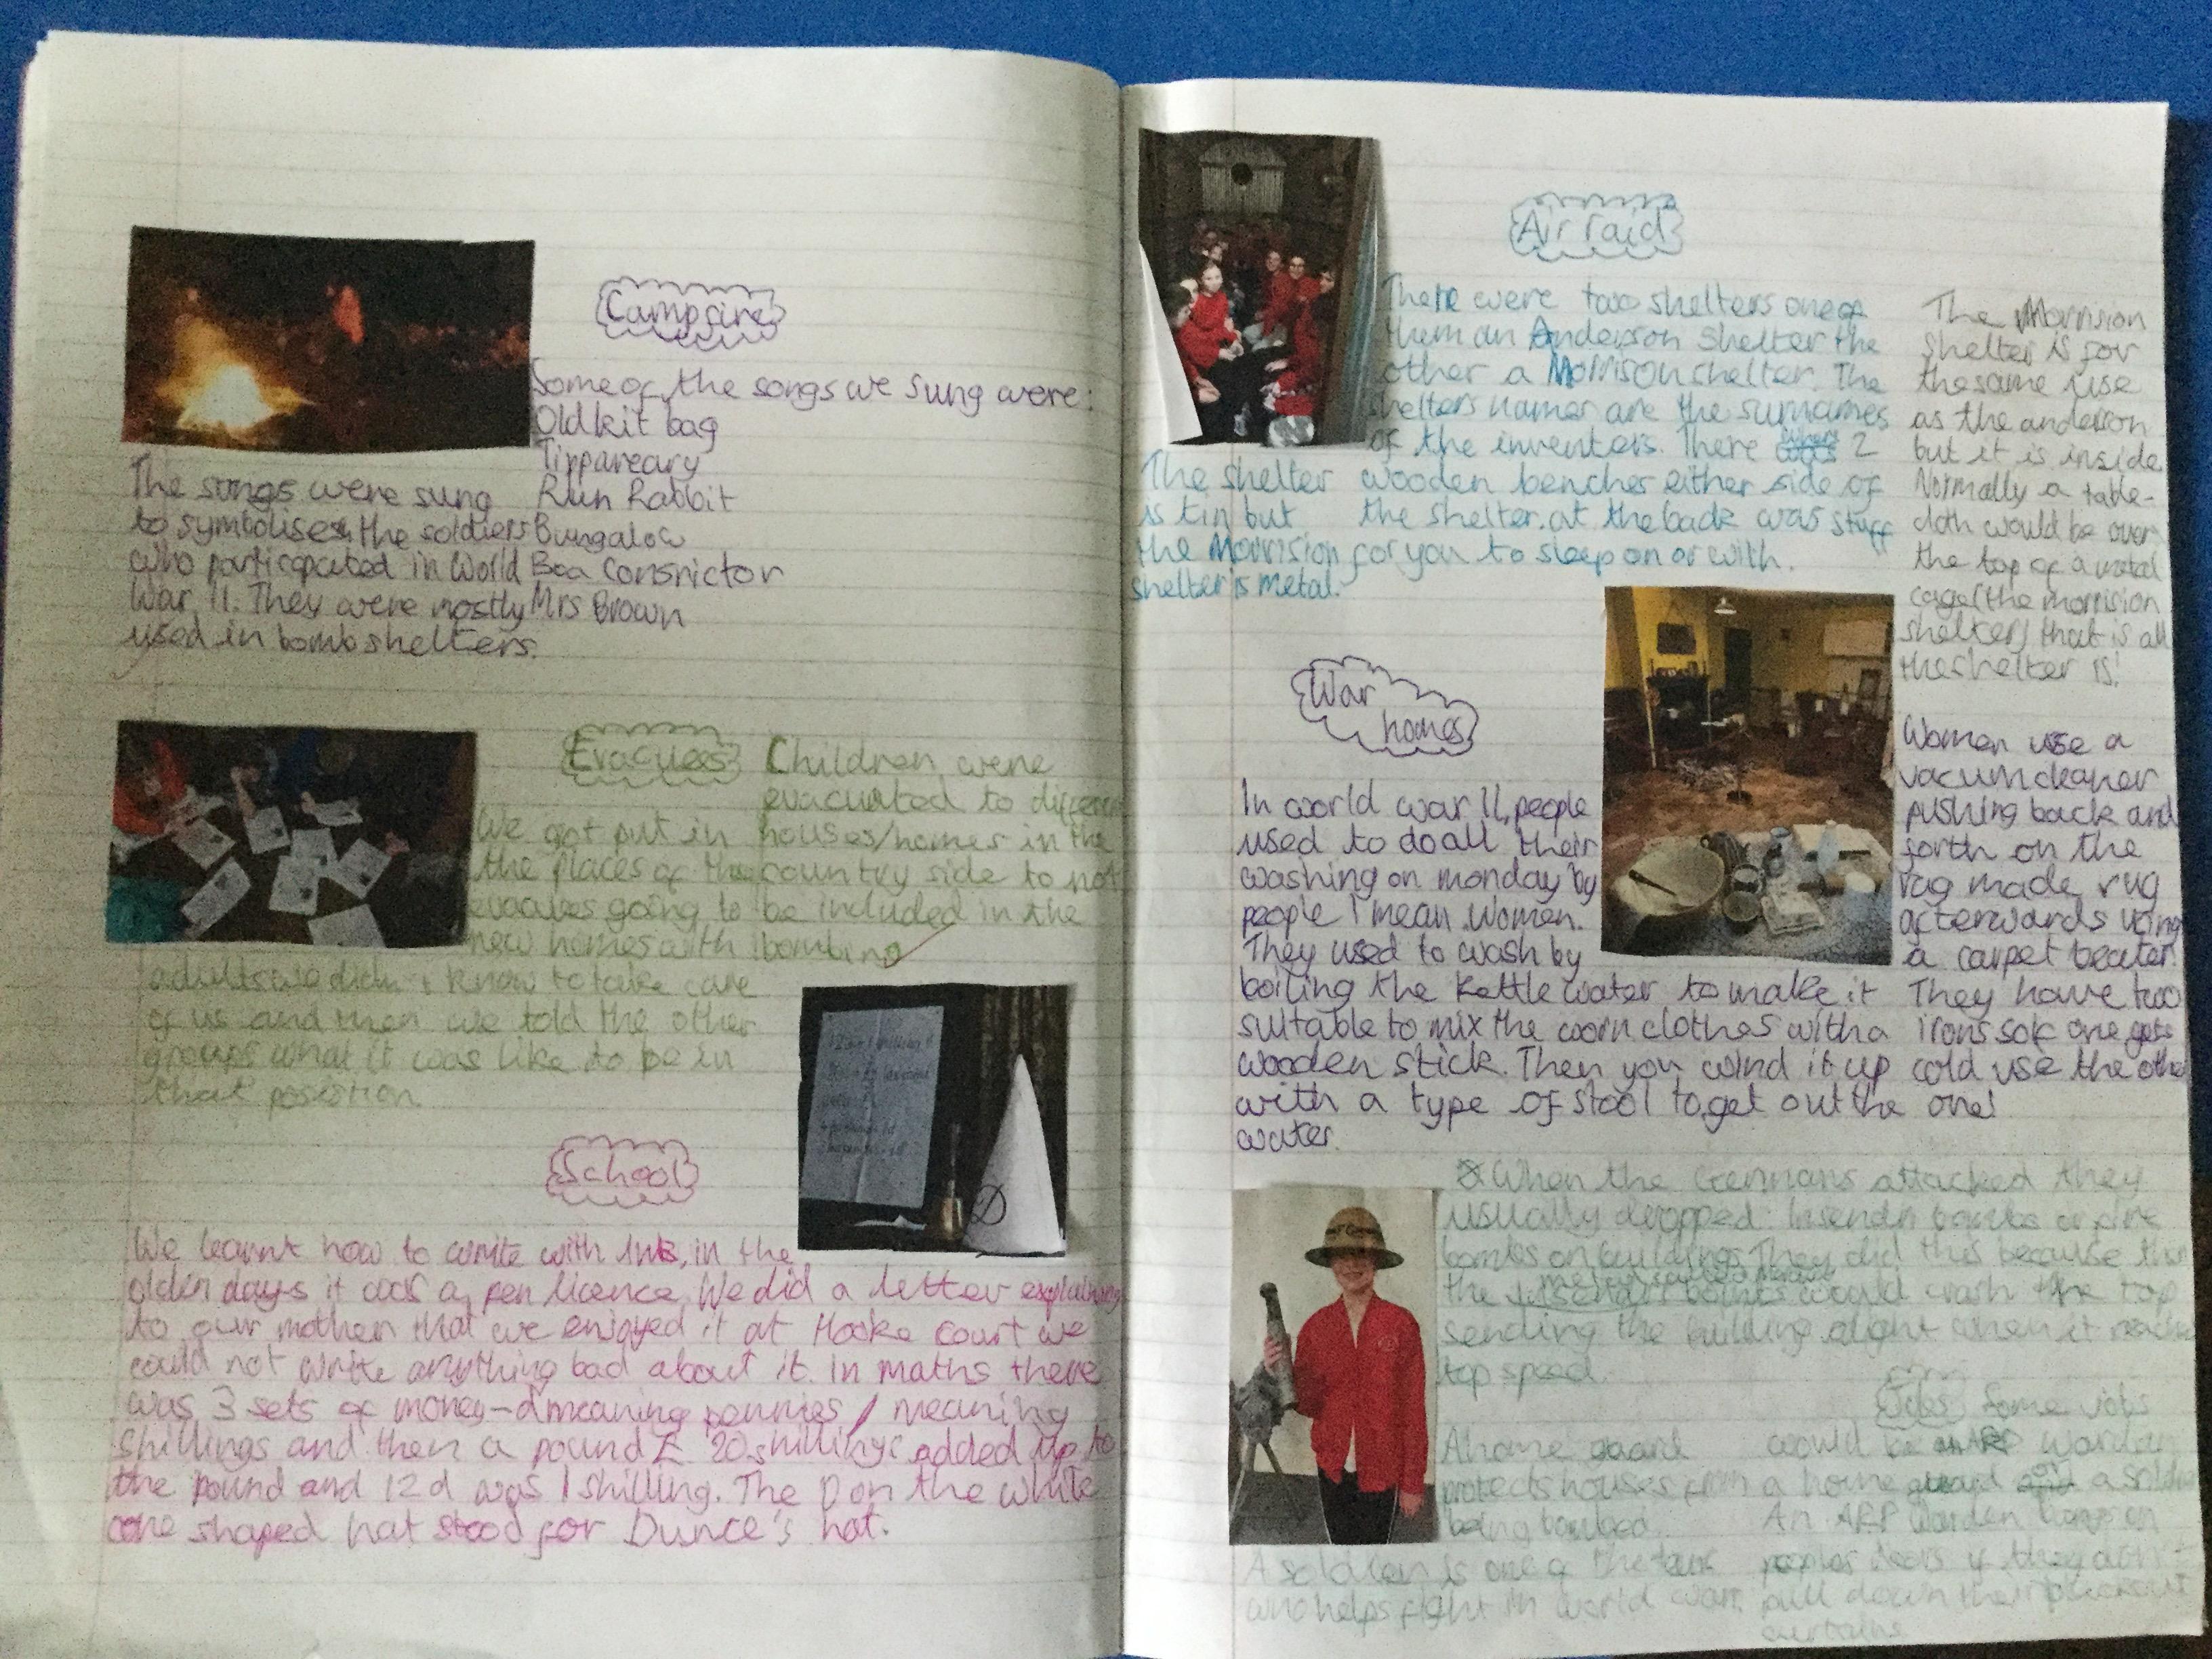 Campfire
Some of the songs we sung were:
Old kit bag
Tippareary
Run Rabbit
Bungalow
Boa Consrictor
Mrs Brown
The songs were sung
to symbolise the soldiers
who participated in World
War 11. They were mostly
used in bombshelters.
Evacuees
We got put in
the places of the
evacuees going to
new homes with
adults we didn't know to take care
of us and then we told the other
groups what it was like to be in
that position.
Children were
evacuated to different
houses/homes in the
country side to not
be included in the
bombing
School
We learnt how to write with Ink, in the
olden days it was a pen licence. We did a letter explaining
to our mother that we enjoyed it at Hooke Court we
could not write anything bad about it. in maths there
was 3 sets of money-d meaning pennies / meaning
shillings and then a pound £ 20 shillings added up to
the pound and 12 d was 1 shilling. The D on the white
cone shaped hat stood for Dunce's hat.
D
Air raid
There were two shelters one of
them an Anderson Shelter the
other a Morrison shelter. The
shelters names are the surnames
of the inventers. There were 2
wooden benches either side of
the shelter. at the back was stuff
for you to sleep on or with.
The shelter
is tin but
the Morrision
shelter is metal.
The Morrision
shelter is for
the same use
as the anderson
but it is inside
Normally a table-
cloth would be over
the top of a metal
cage (the morrision
shelter) that is all
the shelter is!
War
homes
In world war 11, people
used to do all their
washing on monday by
people I mean women.
They used to wash by
boiling the kettle water to make it
suitable to mix the worn clothes with a
wooden stick. Then you wind it up
with a type of stool to get out the
water.
Women use a
vacum cleaner
pushing back and
forth on the
rag made rug
afterwards using
a carpet beater.
They have two
irons so one gets
cold use the other
one!
When the Germans attacked they
usually dropped Insendri bombs or fire
bombs on buildings. They did this because then
the bombs would crash the top
sending the building alight when it reaches
top speed.
Jobs
A home guard
protects houses from
being bombed.
A soldier is one of the
who helps fight in world war.
Some jobs
would be an ARP Warden
a home guard and a soldier
An ARP Warden bangs on
peoples doors if they
pull down their blackout
curtains